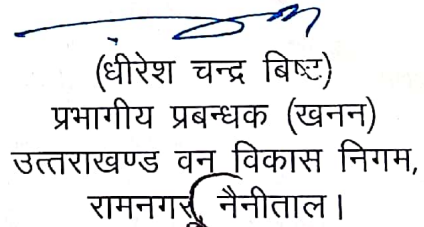 (धीरेश चन्द्र बिष्ट)
प्रभागीय प्रबन्धक (खनन)
उत्तराखण्ड वन विकास निगम,
रामनगर, नैनीताल।